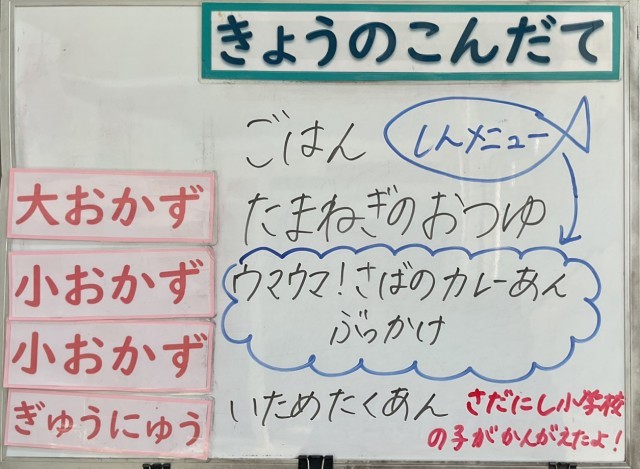 きょうのこんだて
ごはん
しんメニュー
大おかず
たまねぎのおつゆ
小おかず
ウマウマ!さばのカレーあん
ぶっかけ
小おかず
いためたくあん
ぎゅうにゅう
さだにし小学校
の子がかんがえたよ!